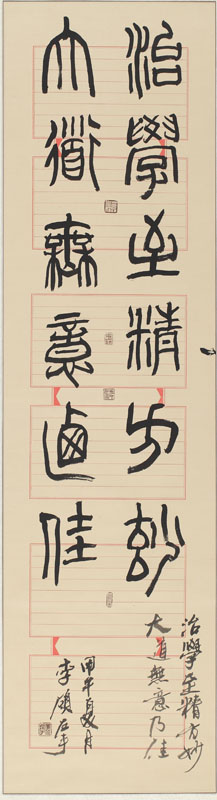 治學至精方妙
大道無意迺佳
治學至精方妙
大道無意乃佳
甲午夏月
李左手